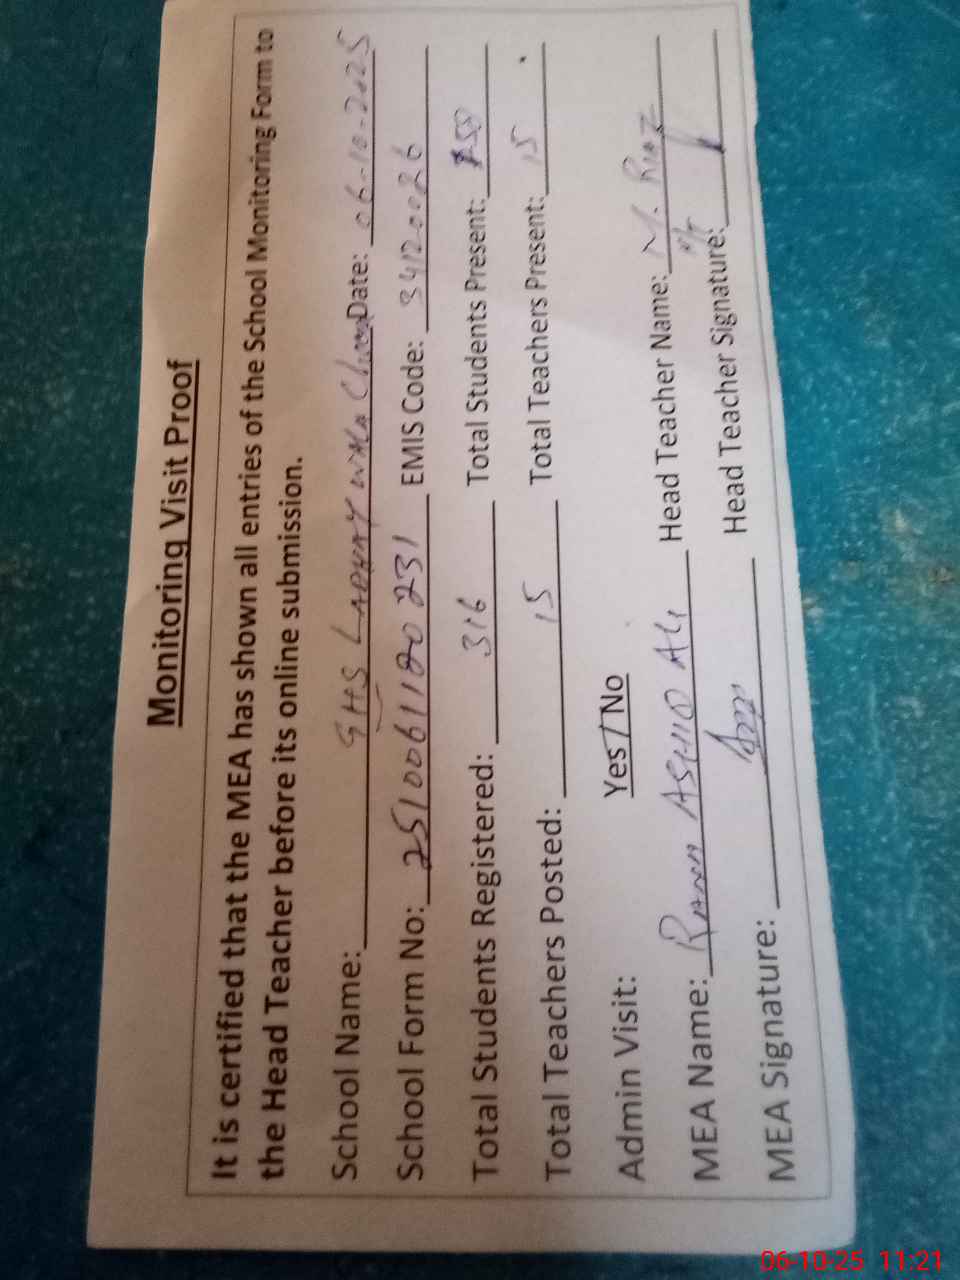 Monitoring Visit Proof
It is certified that the MEA has shown all entries of the School Monitoring Form to
the Head Teacher before its online submission.
School Name: GHS Date: 06-10-2025
School Form No: EMIS Code: 34120026
Total Students Registered: 316 Total Students Present:
Total Teachers Posted: 15 Total Teachers Present: 15
Admin Visit: Yes / No
MEA Name: Head Teacher Name: M. Riaz
MEA Signature: Head Teacher Signature:
06-10-25 11:21